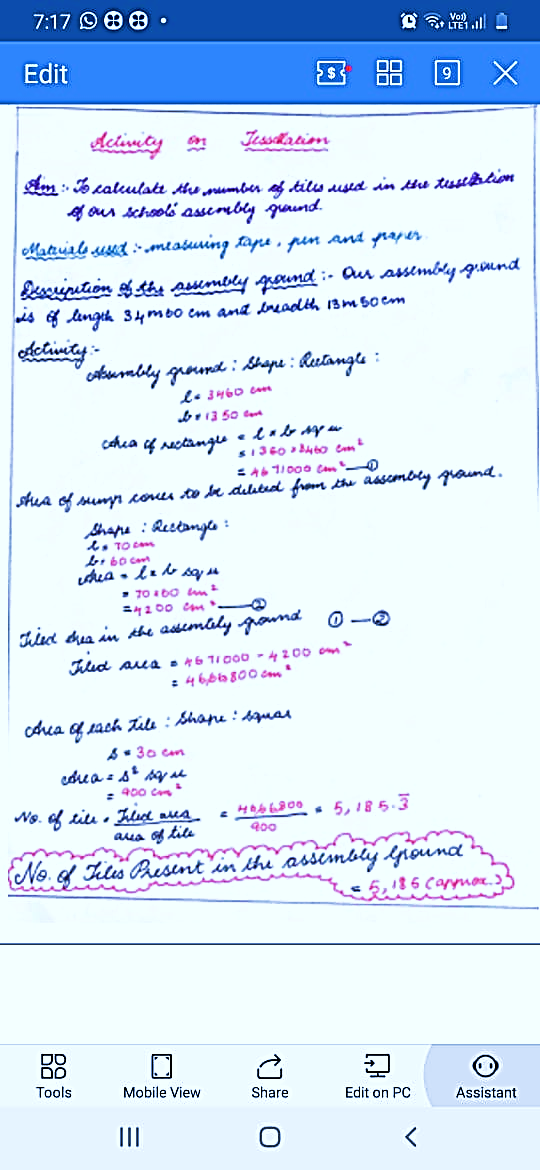 7:17
Vo))
LTE1
Edit
$
9
Activity on Tessellation
Aim :- To calculate the number of tiles used in the tessellation
of our schools' assembly ground.
Materials used :- measuring tape, pen and paper.
Description of the assembly ground :- Our assembly ground
is of length 34m60 cm and breadth 13m50cm
Activity:-
Assembly ground : Shape : Rectangle :
l = 3460 cm
b = 1350 cm
Area of rectangle = l × b sq u
= 1350 × 3460 cm²
= 4671000 cm² — ①
Area of sump cover to be deleted from the assembly ground.
Shape : Rectangle :
l = 70 cm
b = 60 cm
Area = l × b sq u
= 70×60 cm²
= 4200 cm² — ②
Tiled area in the assembly ground ① — ②
Tiled area = 4671000 - 4200 cm²
= 46,66800 cm²
Area of each tile : Shape : squar
s = 30 cm
Area = s² sq u
= 900 cm²
No. of tile = Tiled area / area of tile = 4666800 / 900 = 5,185.3̅
No. of Tiles Present in the assembly Ground
= 5,185 (approx.)
Tools
Mobile View
Share
Edit on PC
Assistant